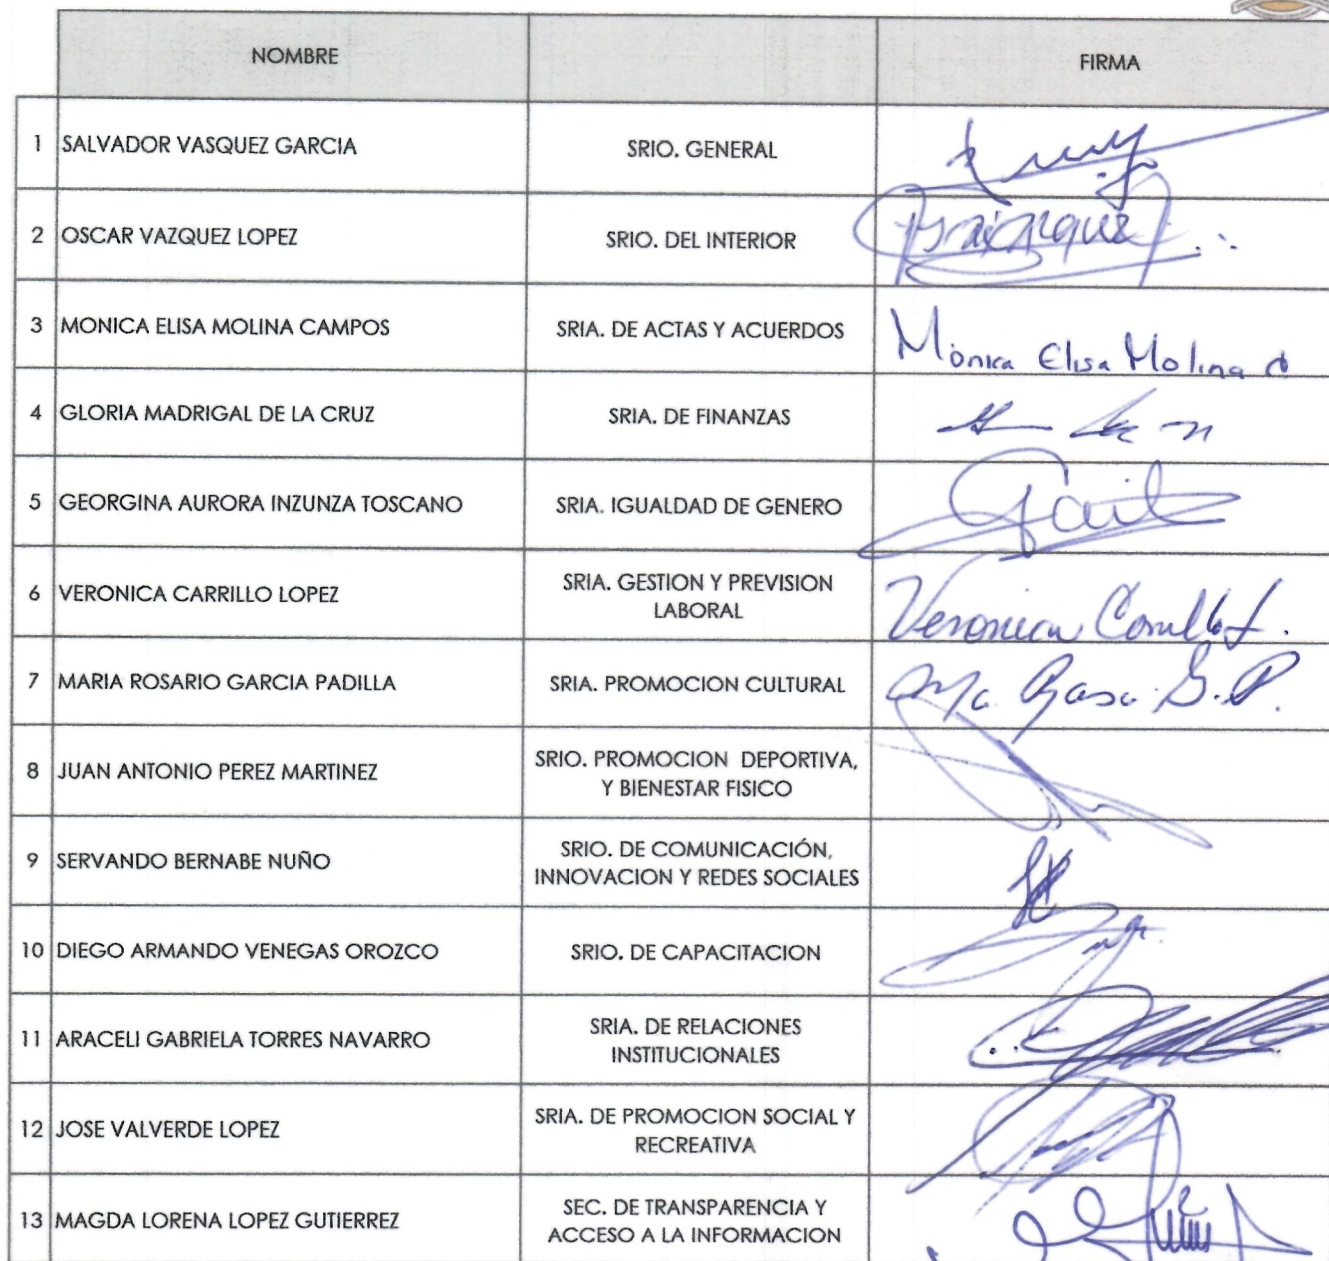 NOMBRE FIRMA
1 SALVADOR VASQUEZ GARCIA SRIO. GENERAL
2 OSCAR VAZQUEZ LOPEZ SRIO. DEL INTERIOR
3 MONICA ELISA MOLINA CAMPOS SRIA. DE ACTAS Y ACUERDOS Mónica Elisa Molina C
4 GLORIA MADRIGAL DE LA CRUZ SRIA. DE FINANZAS
5 GEORGINA AURORA INZUNZA TOSCANO SRIA. IGUALDAD DE GENERO
6 VERONICA CARRILLO LOPEZ SRIA. GESTION Y PREVISION
LABORAL Veronica Carrillo L.
7 MARIA ROSARIO GARCIA PADILLA SRIA. PROMOCION CULTURAL Ma. Rosa. G. P.
8 JUAN ANTONIO PEREZ MARTINEZ SRIO. PROMOCION DEPORTIVA,
Y BIENESTAR FISICO
9 SERVANDO BERNABE NUÑO SRIO. DE COMUNICACIÓN,
INNOVACION Y REDES SOCIALES
10 DIEGO ARMANDO VENEGAS OROZCO SRIO. DE CAPACITACION
11 ARACELI GABRIELA TORRES NAVARRO SRIA. DE RELACIONES
INSTITUCIONALES
12 JOSE VALVERDE LOPEZ SRIA. DE PROMOCION SOCIAL Y
RECREATIVA
13 MAGDA LORENA LOPEZ GUTIERREZ SEC. DE TRANSPARENCIA Y
ACCESO A LA INFORMACION